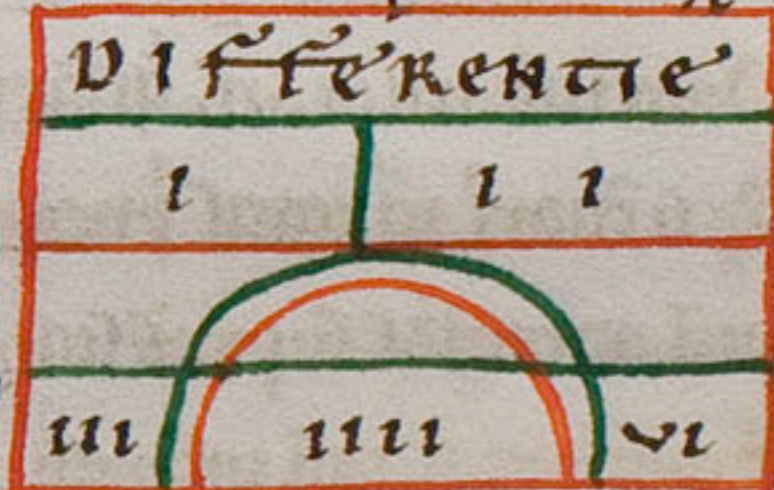 DIFFERENTIE
i ii
iii iiii vi